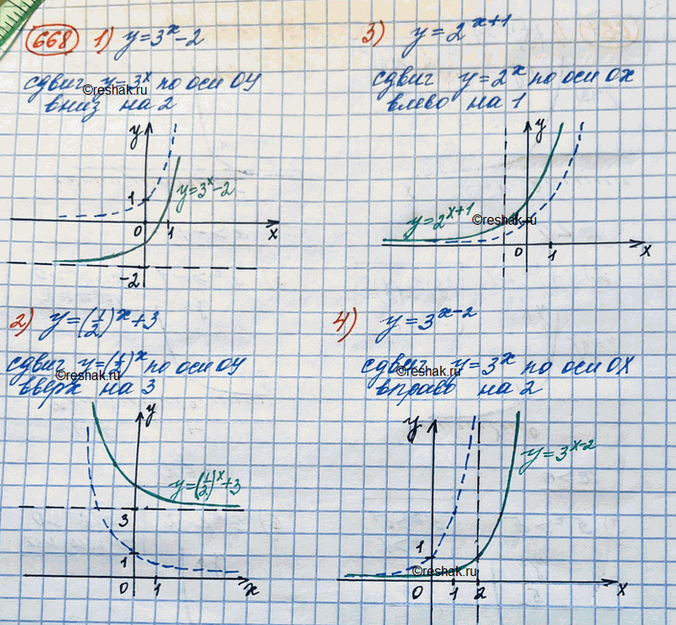 668 1) y=3^x-2
сдвиг y=3^x по оси OY
вниз на 2
©reshak.ru
y
1
y=3^x-2
0 1 x
-2
3) y=2^{x+1}
сдвиг y=2^x по оси OX
влево на 1
y
©reshak.ru
y=2^{x+1}
0 1 x
2) y=(1/2)^x+3
сдвиг y=(1/2)^x по оси OY
©reshak.ru
вверх на 3
y
y=(1/2)^x+3
3
1
0 1 x
4) y=3^{x-2}
сдвиг y=3^x по оси OX
©reshak.ru
вправо на 2
y
y=3^{x-2}
1
©reshak.ru
0 1 2 x